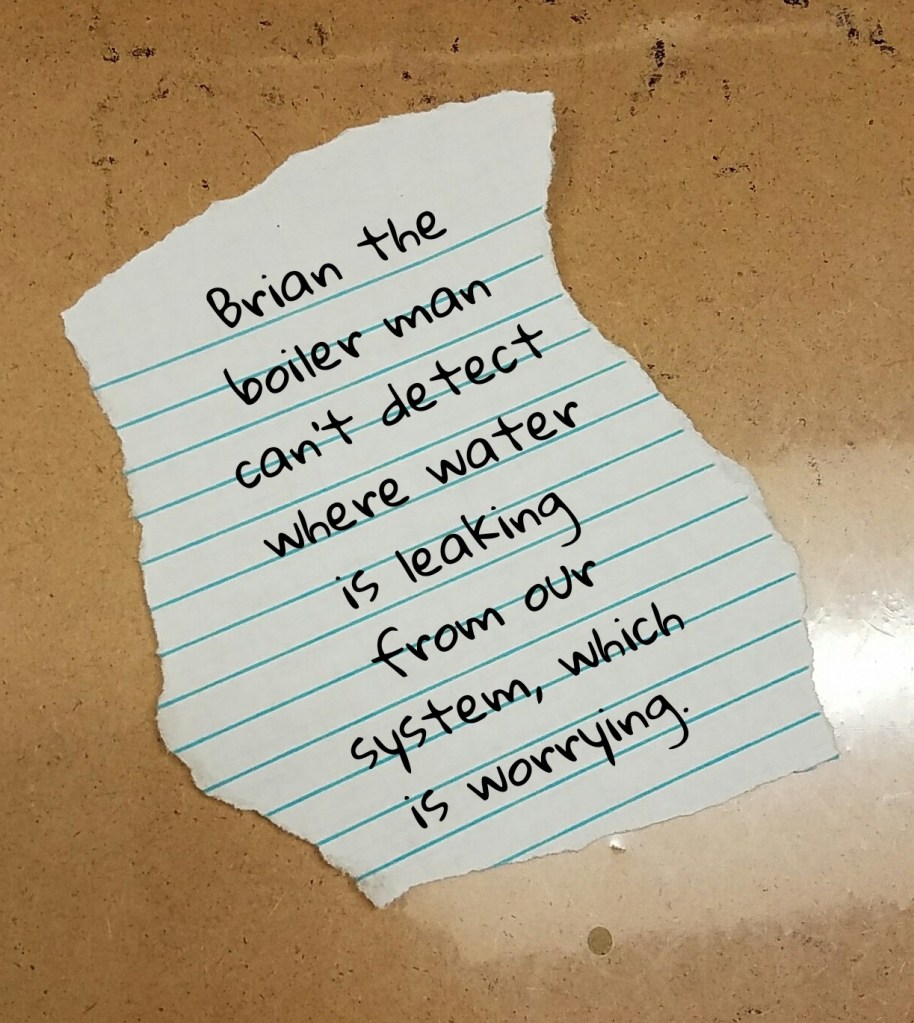 Brian the
boiler man
can't detect
where water
is leaking
from our
system, which
is worrying.